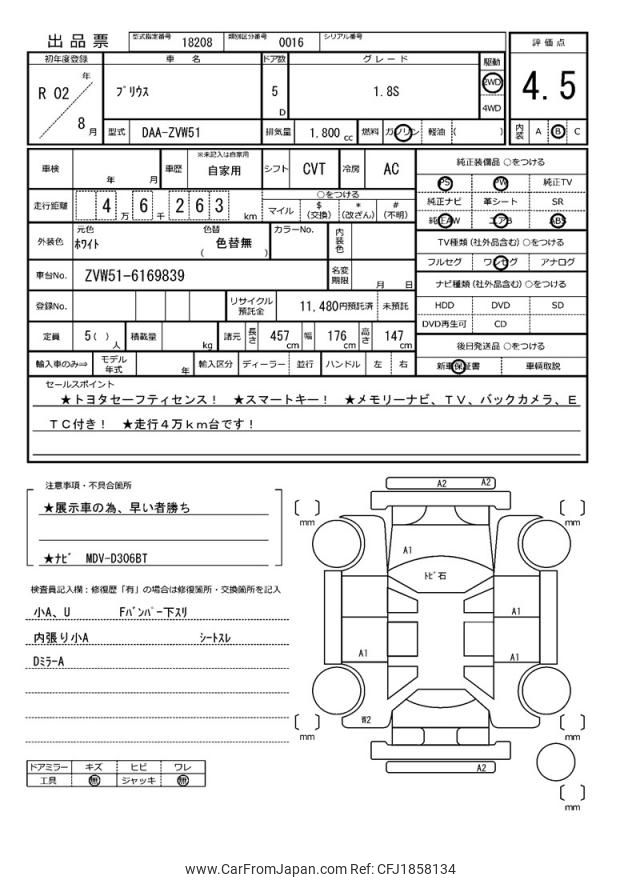 出品票 型式指定番号 18208 類別区分番号 0016 シリアル番号
評価点
初年度登録 車名 ドア数 グレード 駆動
R 02 年 8 月
プリウス 5 D 1.8S 2WD 4WD
4.5
型式 DAA-ZVW51 排気量 1.800 cc 燃料 ガソリン 軽油 ( )
内装 A B C
車検 年 月 車歴 ※未記入は自家用 自家用 シフト CVT 冷房 AC
純正装備品 ○をつける
PS PW 純正TV
走行距離 4 万 6 千 2 6 3 km
○をつける
マイル $ (交換) * (改ざん) # (不明)
純正ナビ 革シート SR
純正AW エアB ABS
外装色 元色 ホワイト 色替 色替無 ( ) カラーNo. 内装色
TV種類 (社外品含む) ○をつける
フルセグ ワンセグ アナログ
車台No. ZVW51-6169839 名変期限 月 日
ナビ種類 (社外品含む) ○をつける
登録No. リサイクル預託金 11,480円預託済 未預託
HDD DVD SD
DVD再生可 CD
定員 5 ( ) 人 積載量 kg 諸元 長さ 457 cm 幅 176 cm 高さ 147 cm
後日発送品 ○をつける
輸入車のみ⇒ モデル年式 年 輸入区分 ディーラー 並行 ハンドル 左 右
新車保証書 車輌取説
セールスポイント
★トヨタセーフティセンス! ★スマートキー! ★メモリーナビ、TV、バックカメラ、E
TC付き! ★走行4万km台です!
注意事項・不具合箇所
★展示車の為、早い者勝ち
★ナビ MDV-D306BT
検査員記入欄:修復歴「有」の場合は修復箇所・交換箇所を記入
小A、U Fバンパー下スリ
内張り小A シートスレ
DミラーA
ドアミラー キズ ヒビ ワレ
工具 無 ジャッキ 無
A2 A2
mm mm
A1
トビ石
A1
A1 A1
W2
mm mm
A2
mm
www.CarFromJapan.com Ref: CFJ1858134